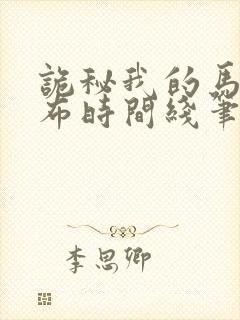 詭秘我的馬
布時間綫筆
李思卿